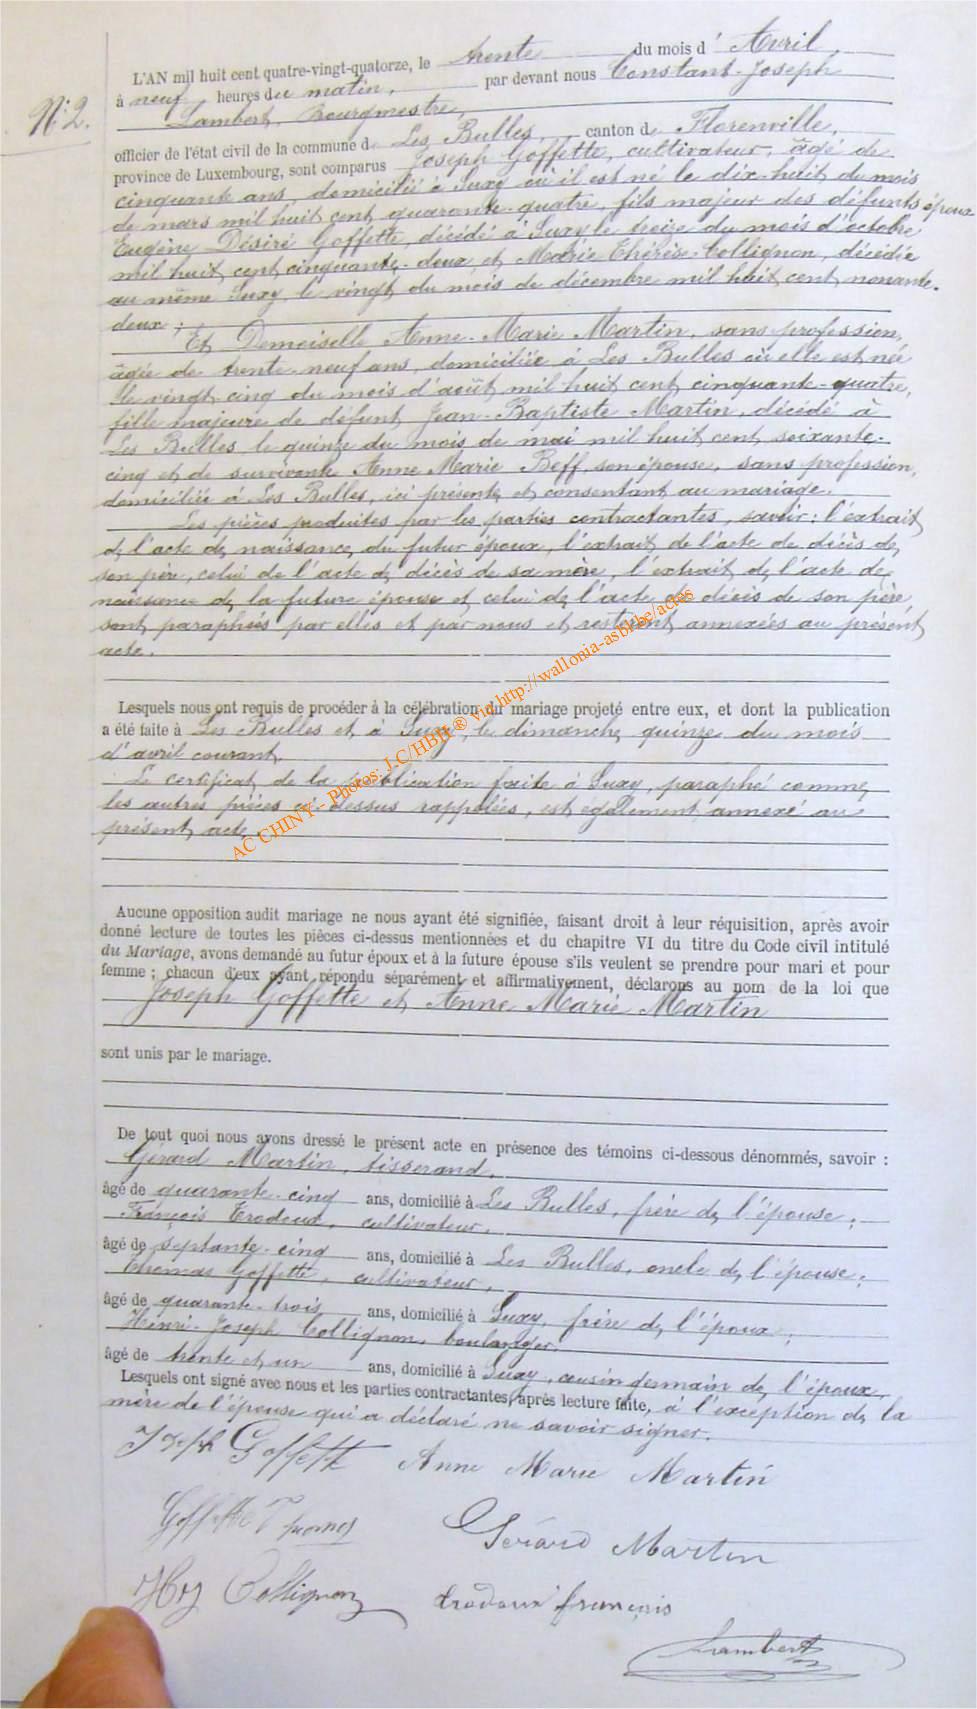 N° 2.
L'AN mil huit cent quatre-vingt-quatorze, le trente du mois d' Avril,
à neuf heures du matin, par devant nous Constant-Joseph
Lambert, Bourgmestre,
officier de l'état civil de la commune de Les Bulles, canton de Florenville,
province de Luxembourg, sont comparus Joseph Goffette, cultivateur, âgé de
cinquante ans, domicilié à Suxy où il est né le dix-huit du mois
de mars mil huit cent quarante-quatre, fils majeur des défunts époux
Eugène Désiré Goffette, décédé à Suxy le treize du mois d'octobre
mil huit cent cinquante-deux, et Marie Thérèse Collignon, décédée
au même Suxy, le vingt du mois de décembre mil huit cent nonante-
deux;
Et Demoiselle Anne-Marie Martin, sans profession,
âgée de trente-neuf ans, domiciliée à Les Bulles où elle est née
le vingt cinq du mois d'août mil huit cent cinquante-quatre,
fille majeure de défunt Jean-Baptiste Martin, décédé à
Les Bulles le quinze du mois de mai mil huit cent soixante-
cinq et de survivante Anne Marie Beff, son épouse, sans profession,
domiciliée à Les Bulles, ici présente et consentant au mariage.
Les pièces produites par les parties contractantes, savoir: l'extrait
de l'acte de naissance du futur époux, l'extrait de l'acte de décès de
son père, celui de l'acte de décès de sa mère, l'extrait de l'acte de
naissance de la future épouse et celui de l'acte de décès de son père
sont paraphées par elles et par nous et resteront annexées au présent
acte.
Lesquels nous ont requis de procéder à la célébration du mariage projeté entre eux, et dont la publication
a été faite à Les Bulles et à Suxy, le dimanche quinze du mois
d'avril courant.
Le certificat de la publication faite à Suxy, paraphé comme
les autres pièces ci-dessus rappelées, est également annexé au
présent acte.
AC CHINY - Photos: J.C/HBH ® via http://wallonia-asbl.be/actes
Aucune opposition audit mariage ne nous ayant été signifiée, faisant droit à leur réquisition, après avoir
donné lecture de toutes les pièces ci-dessus mentionnées et du chapitre VI du titre du Code civil intitulé
du Mariage, avons demandé au futur époux et à la future épouse s'ils veulent se prendre pour mari et pour
femme ; chacun d'eux ayant répondu séparément et affirmativement, déclarons au nom de la loi que
Joseph Goffette et Anne Marie Martin
sont unis par le mariage.
De tout quoi nous avons dressé le présent acte en présence des témoins ci-dessous dénommés, savoir :
Gérard Martin, tisserand,
âgé de quarante-cinq ans, domicilié à Les Bulles, frère de l'épouse;
François Trodoux, cultivateur,
âgé de septante-cinq ans, domicilié à Les Bulles, oncle de l'épouse;
Thomas Goffette, cultivateur,
âgé de quarante-trois ans, domicilié à Suxy, frère de l'époux;
Henri-Joseph Collignon, boulanger,
âgé de trente et un ans, domicilié à Suxy, cousin germain de l'époux,
Lesquels ont signé avec nous et les parties contractantes, après lecture faite, à l'exception de la
mère de l'épouse qui a déclaré ne savoir signer.
Joseph Goffette Anne Marie Martin
Goffette Thomas Gérard Martin
Collignon trodoux françois
Lambert